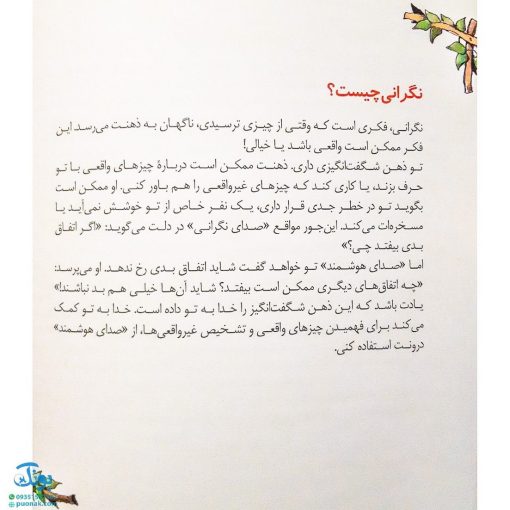 نگرانی چیست؟
نگرانی، فکری است که وقتی از چیزی ترسیدی، ناگهان به ذهنت می‌رسد این
فکر ممکن است واقعی باشد یا خیالی!
تو ذهن شگفت‌انگیزی داری. ذهنت ممکن است دربارهٔ چیزهای واقعی با تو
حرف بزند، یا کاری کند که چیزهای غیرواقعی را هم باور کنی. او ممکن است
بگوید تو در خطر جدی قرار داری، یک نفر خاص از تو خوشش نمی‌آید یا
مسخره‌ات می‌کند. این‌جور مواقع «صدای نگرانی» در دلت می‌گوید: «اگر اتفاق
بدی بیفتد چی؟»
اما «صدای هوشمند» تو خواهد گفت شاید اتفاق بدی رخ ندهد. او می‌پرسد:
«چه اتفاق‌های دیگری ممکن است بیفتد؟ شاید آن‌ها خیلی هم بد نباشند!»
یادت باشد که این ذهن شگفت‌انگیز را خدا به تو داده است. خدا به تو کمک
می‌کند برای فهمیدن چیزهای واقعی و تشخیص غیرواقعی‌ها، از «صدای هوشمند»
درونت استفاده کنی.
پونک
puonak.com